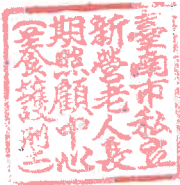 臺南市私立
新營老人長
期照顧中心
(養護型)